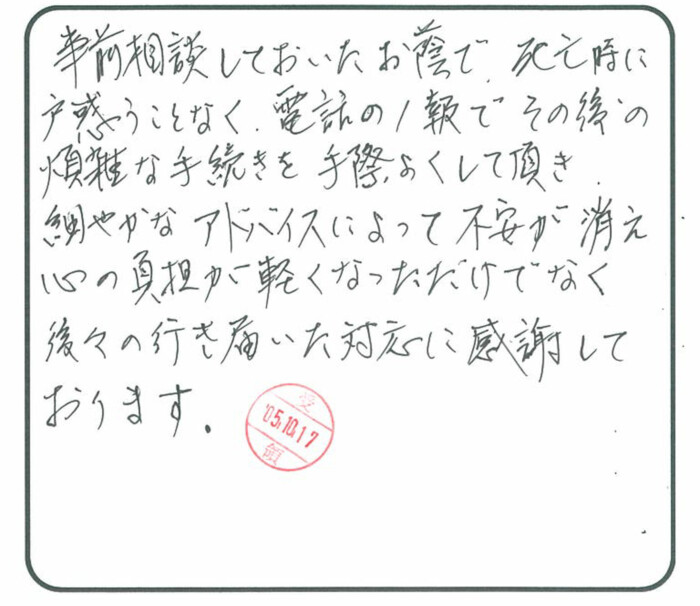 事前相談しておいたお蔭で、死亡時に
戸惑うことなく、電話の1報でその後の
煩雑な手続きを手際よくして頂き、
細やかなアドバイスによって不安が消え
心の負担が軽くなっただけでなく
後々の行き届いた対応に感謝して
おります。
受
'05.10.17
領